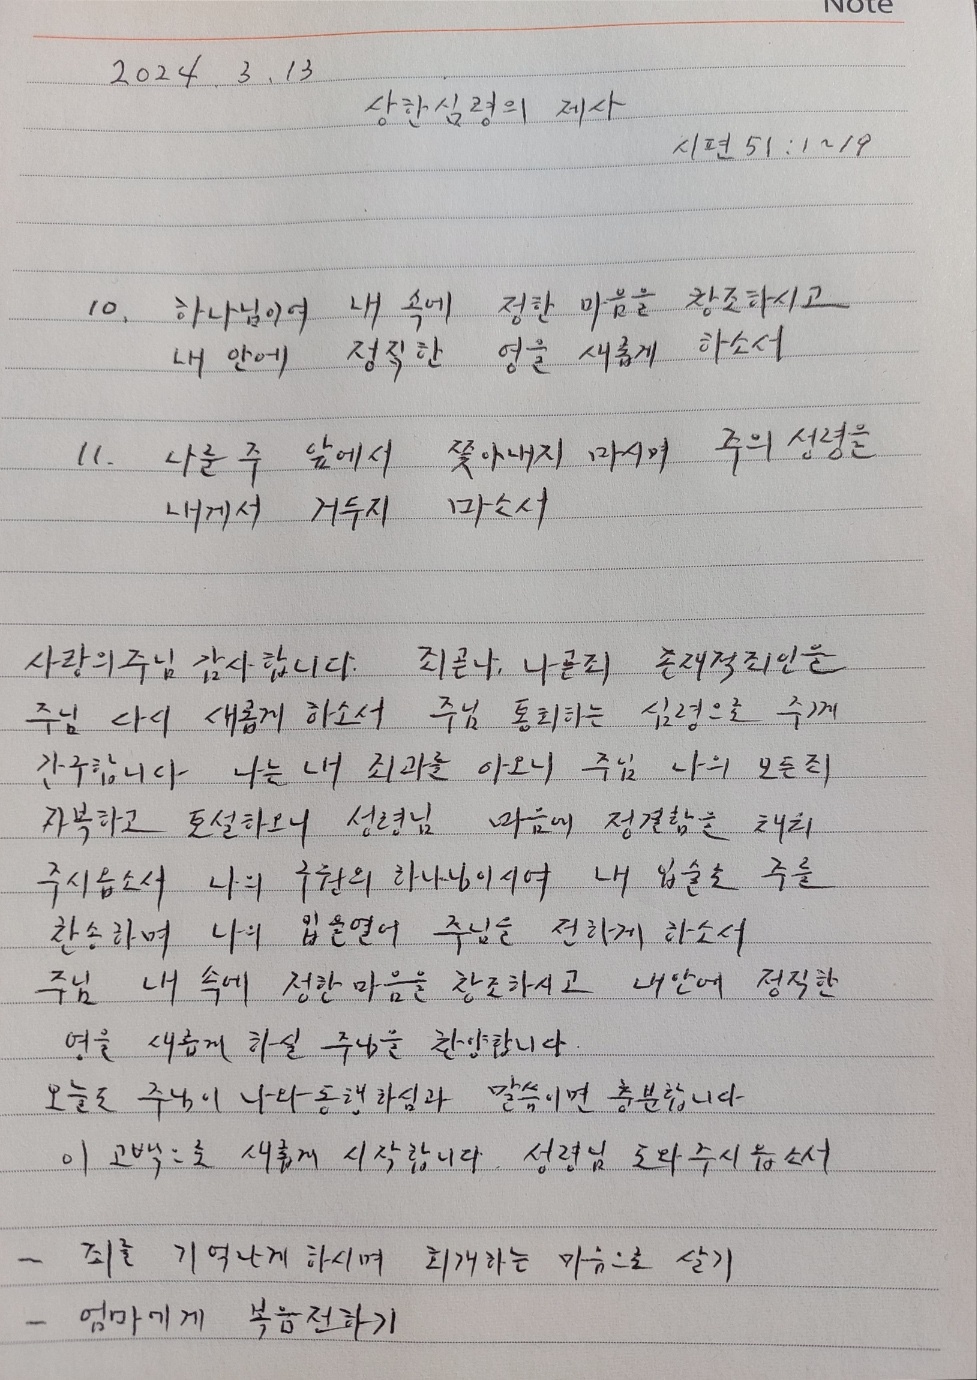 Note
2024. 3. 13
상한심령의 제사
시편 51:1~19
10. 하나님이여 내 속에 정한 마음을 창조하시고
내 안에 정직한 영을 새롭게 하소서
11. 나를 주 앞에서 쫓아내지 마시며 주의 성령을
내게서 거두지 마소서
사랑의주님 감사합니다. 죄곧나, 나곧죄 존재적죄인을
주님 다시 새롭게 하소서 주님 통회하는 심령으로 주께
간구합니다 나는 내 죄과를 아오니 주님 나의 모든죄
자복하고 토설하오니 성령님 마음에 정결함을 채워
주시옵소서 나의 구원의 하나님이시여 내 입술로 주를
찬송하며 나의 입을열어 주님을 전하게 하소서
주님 내 속에 정한 마음을 창조하시고 내안에 정직한
영을 새롭게 하실 주님을 찬양합니다.
오늘도 주님이 나와동행하심과 말씀이면 충분합니다
이 고백으로 새롭게 시작합니다. 성령님 도와주시옵소서
- 죄를 기억나게 하시며 회개하는 마음으로 살기
- 엄마에게 복음전하기